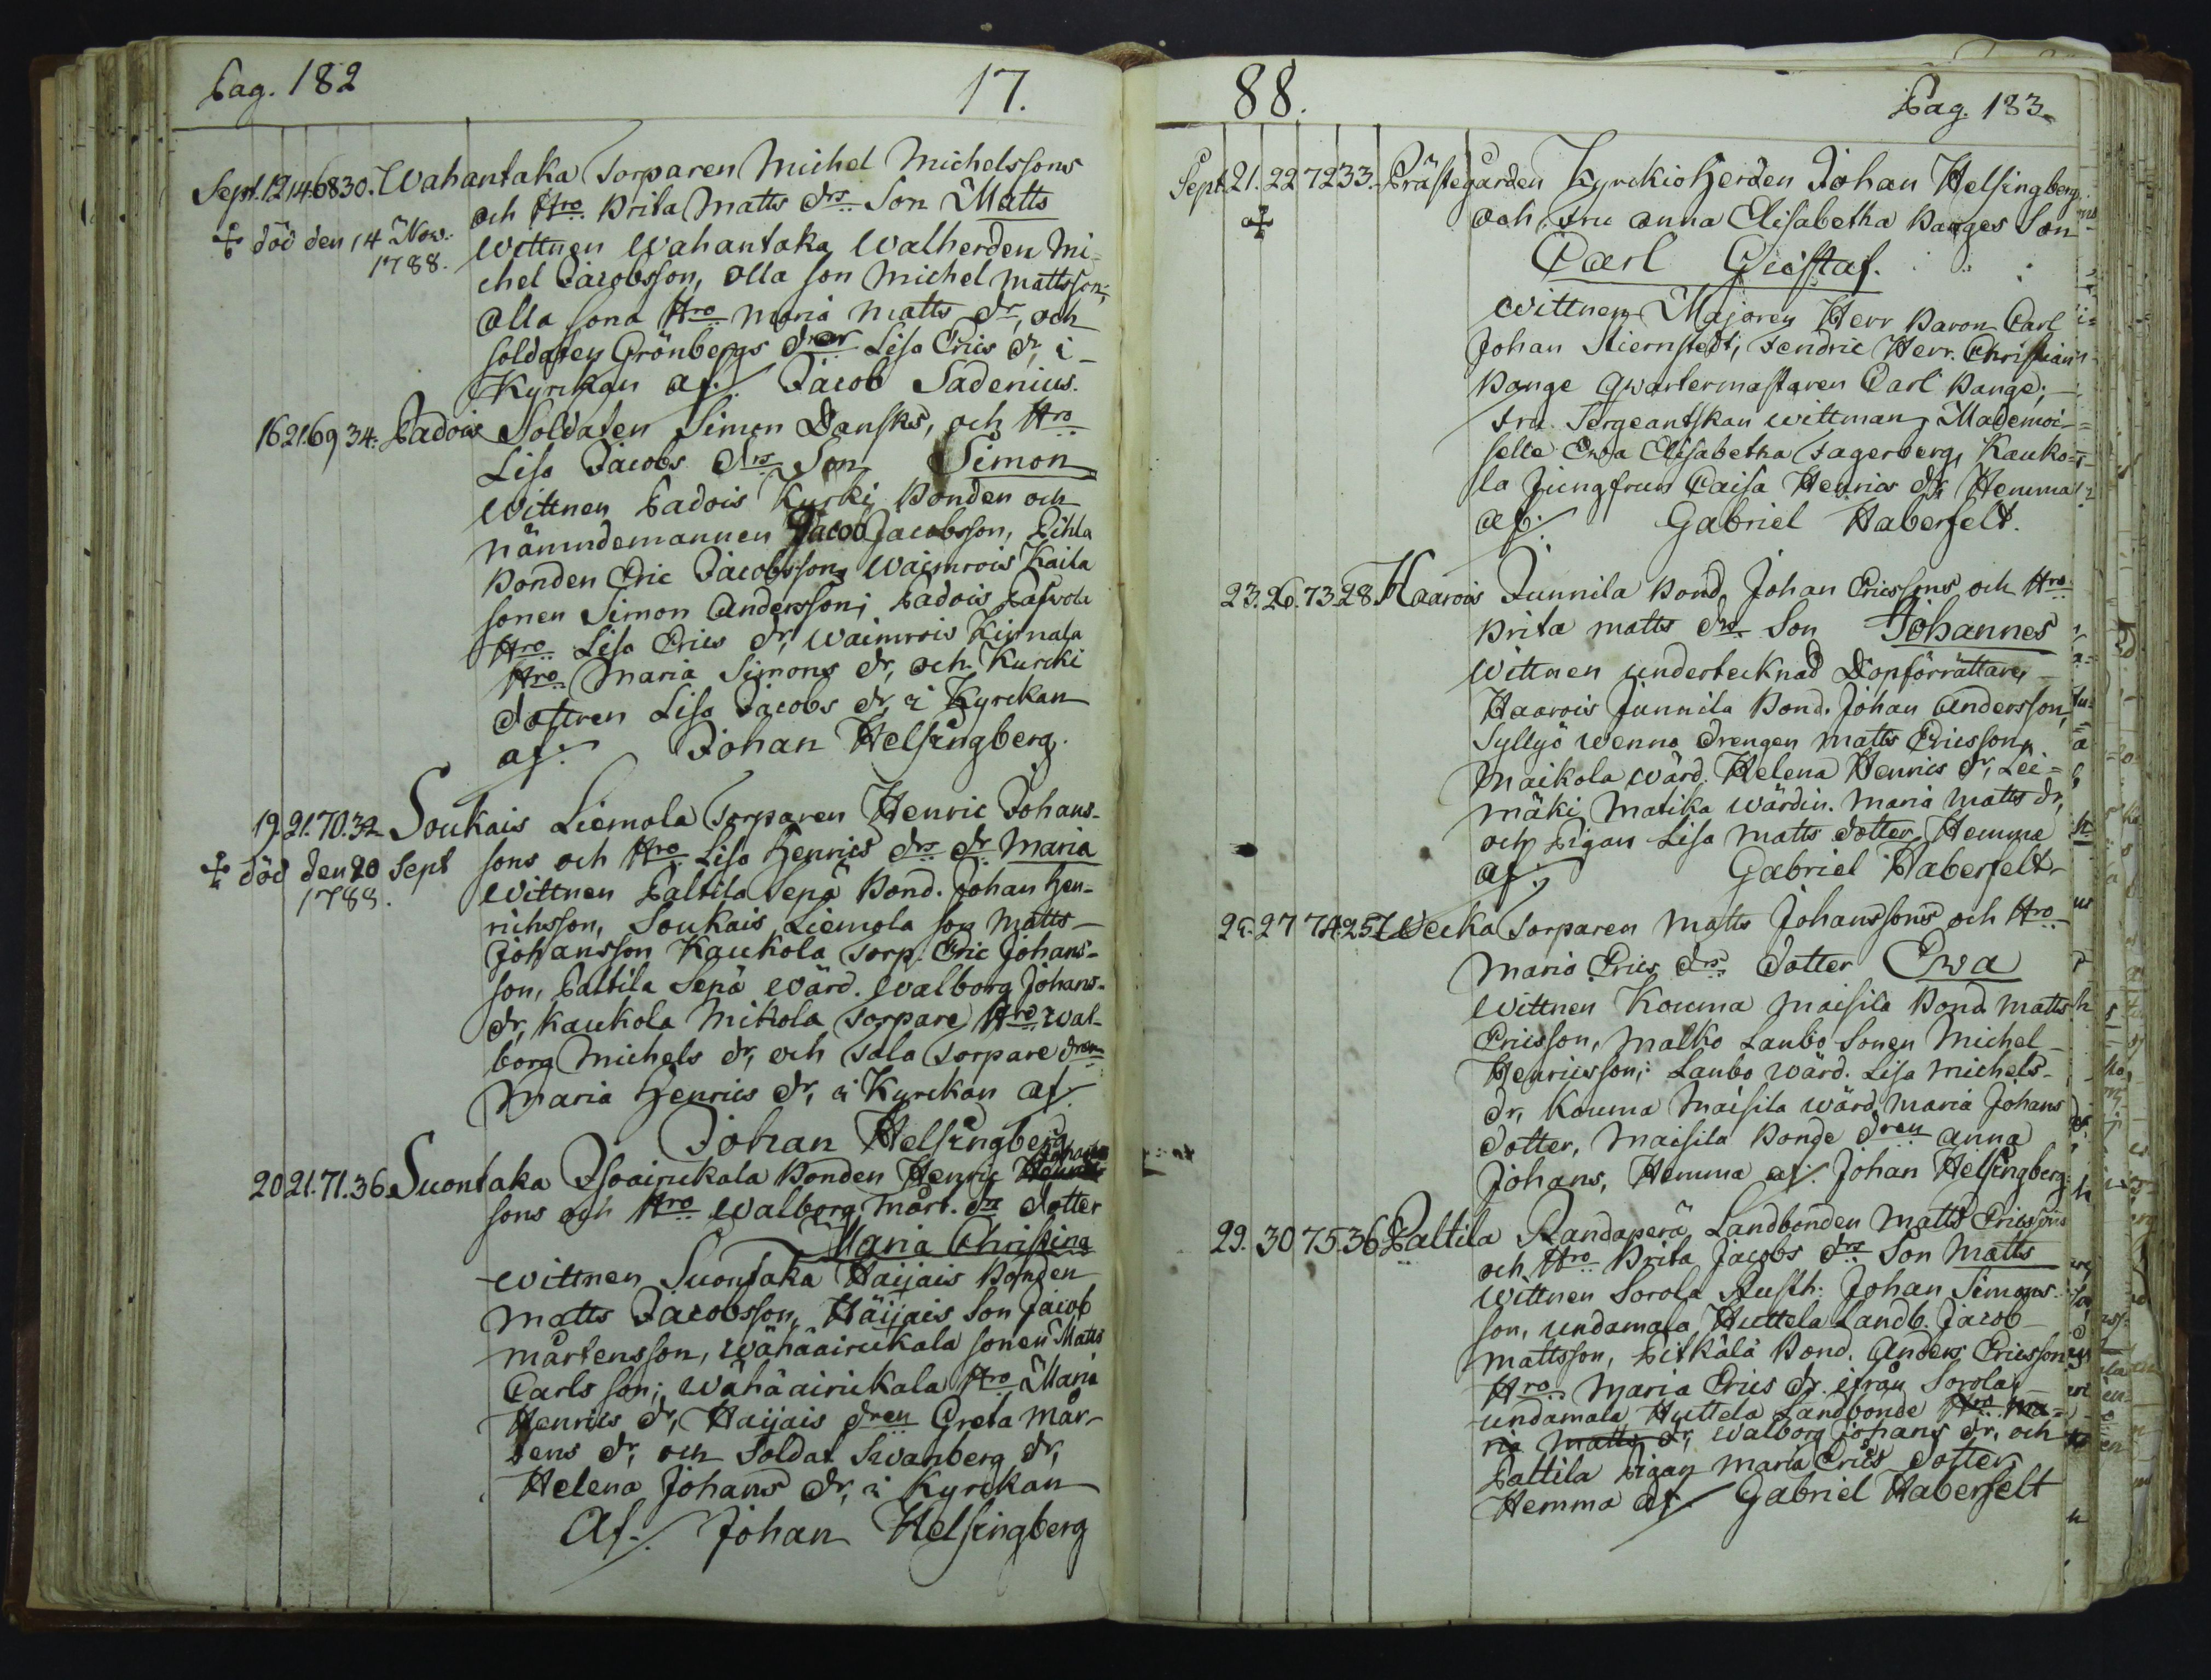 Pag. 182
17.
Sept. 12 14 68 30. Wahantaka Torparen Michel Michelssons
och Hro Brita Matts drs Son Matts
✝ död den 14 Now.
1788.
Wittnen Wahantaka Walherden Mi-
chel Jacobsson, Olla son Michel Mattsson;
Olla sona Hro Maria Matts dr, och
soldaten Grönbergs drar Lisa Erics dr, i
Kyrckan af./. Jacob Sadenius.
16 21. 69 34. Padois Soldaten Simon Dansks, och Hro
Lisa Jacobs drs Son Simon
Wittnen Padois Kurki Bonden och
nämndemannen Jacob Jacobsson, Pihla
Bonden Eric Jacobsson, Waimrois Kaila
sonen Simon Andersson; Padois
Hro Lisa Erics dr, Waimrois Kinnala
Hro Maria Simons dr, och Kurcki
dottren Lisa Jacobs dr, i Kyrckan
af./. Johan Helsingberg.
19. 21. 70. 32 Soukais Liemola Torparen Henric Johans-
sons och Hro Lisa Henrics drs dr Maria
✝ död den 20 Sept
1788.
Wittnen Paltila Sepä Bond. Johan Hen-
richsson, Soukais Liemola son Matts
Johansson Kaukola Torp. Eric Johans-
son, Paltila Sepä Wärd. Walborg Johans-
dr, Kaukola Mikola Torpare Hro Wal-
borg Michels dr, och Tala Torpare dren
Maria Henrics dr, i Kyrckan af./.
Johan Helsingberg
20 21. 71. 36 Suontaka Isoairickala Bonden Henric Johans
sons och Hro Walborg Mårt. drs dotter
Maria Christina
Wittnen Suontaka Haijais Bonden
Matts Jacobsson, Häijais Son Jacob
Mårtensson, Wähäairickala sonen Matts
Carls son; Wähäairickala Hro Maria
Henrics dr, Haijais dren Greta Mår-
tens dr, och Soldat Swanberg dr,
Helena Johans dr, i Kyrckan
Af./. Johan Helsingberg
88.
Pag. 183.
Sept. 21. 22 72 33. Prästegården Kyrckioherden Johan Helsingbergs
och Fru Anna Elisabetha Banges Son
✝
Carl Gustaf.
Wittnen Majoren Herr Baron Carl
Johan Stiernstedt, Fendric Herr. Christian
Bange Qwartermästaren Carl Bange;
Fru Sergeantskan Wittman, Mademoi-
selle Ewa Elisabetha Fagerberg, Kauko-
la Jungfrun Caisa Henrics dr, Hemma
af./. Gabriel Haberfelt.
23. 26. 73. 28. Haarois Junnila Bond. Johan Ericssons och Hro
Brita Matts drs Son Johannes
Wittnen undertecknad Dopförrättare,
Haarois Junnila Bond. Johan Andersson,
Syllyö Wenno drengen Matts Ericsson,
Maikola Wärd. Helena Henrics dr, Lei-
mäki Matika Wärdin. Maria Matts dr,
och Pigan Lisa Matts dotter, Hemma
af./. Gabriel Haberfelt
25. 27 74. 25 Wecka Torparen Matts Johanssons och Hro
Maria Erics drs dotter Ewa
Wittnen Kouma Maisila Bond. Matts
Ericsson, Malko Laubo Sonen Michel
Henricsson; Laubo Wärd. Lisa Michels-
dr, Kouma Maisila Wärd. Maria Johans
dotter, Maisila Bonde dren Anna
Johans, Hemma af./. Johan Helsingberg.
29. 30 75. 36 Paltila Randaperä Landbonden Matts Ericssons
och Hro Brita Jacobs drs Son Matts
Wittnen Sorola Rusth: Johan Simons-
son, Undamala Huttela Landb. Jacob
Mattsson, Pitkälä Bond. Anders Ericsson
Hro Maria Erics dr. ifrån Sorola,
Undamala Huttela Landbonde Hro Ma-
ria Matts dr, Walborg Johans dr, och
Paltila Pigan Maria Erics dotter
Hemma af./. Gabriel Haberfelt